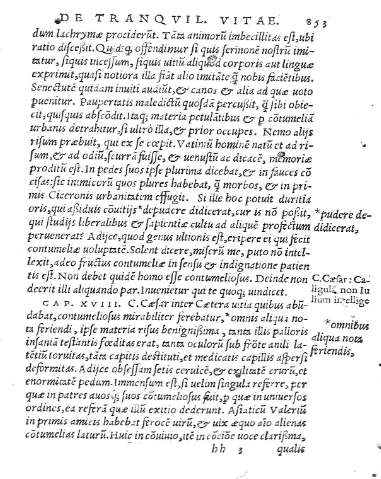 DE TRANQVIL. VITAE. 853
dum lachrymæ prociderūt. Tāta animorū imbecillitas est, ubi
ratio discessit. Quid, q̃ offendimur si quis sermonē nostrū imi-
tatur, si quis incessum, si quis uitiū aliquod corporis aut linguæ
exprimit, quasi notiora illa fiāt alio imitāte q̃ nobis faciētibus.
Senectutē quidam inuiti audiūt, & canos & alia ad quæ uoto
puenitur. Paupertatis maledictū quosdā percussit, q̃ sibi obie-
cit, quisquis abscōdit. Itaq; materia petulātibus & p cōtumeliā
urbanis detrahitur, si ultro illā, & prior occupes. Nemo alijs
risum præbuit, qui ex se cœpit. Vatiniū hominē natū et ad ri-
sum, & ad odiū, scurrā fuisse, & uenustū ac dicacē, memoriæ
proditū est. In pedes suos ipse plurima dicebat, & in fauces cō
cisas: sic inimicorū quos plures habebat, q̃ morbos, & in pri-
mis Ciceronis urbanitatem effugit. Si ille hoc potuit duritia
oris, qui assiduis cōuitijs *depudere didicerat, cur is nō possit,
qui studijs liberalibus & sapientiæ cultu ad aliquē profectum
peruenerit? Adijce, quod genus ultionis est, eripere ei qui fecit
contumeliæ uoluptatē. Solent dicere, miserū me, puto nō intel-
lexit, adeo fructus contumeliæ in sensu & indignatione patien-
tis est. Non deerit illi aliquando par. Inuenietur qui te quoq; uindicet.
*pudere de-
didicerat,
CAP. XVIII. C. Cæsar inter cætera uitia quibus abū
dabat, contumelijs mirabiliter ferebatur, *omnis aliqua no-
ta feriendi, ipse materia risus benignissima, tanta illi palloris
insaniā testantis fœditas erat, tanta oculorū sub frōte anili la-
tētiū toruitas, tāta capitis destituti, et medicatis capillis aspersi
deformitas. Adijce obsessam setis ceruicē, & exilitatē crurū, et
enormitatē pedum. Immensum est, si uelim singula referre, per
quæ in patres auosq; suos cōtumeliosus fuit, p quæ in uniuersos
ordines, ea referā quæ illū exitio dederunt. Asiaticū Valeriū
in primis amicis habebat ferocē uirū, & uix æquo aīo alienas
cōtumelias laturū. Huic in cōuiuio, itē in cōcione uoce clarissma,
C. Cæsar: Ca-
ligula, non Iu
lium intellige
*omnibus
aliqua nota
feriendis,
hh 3 qualis